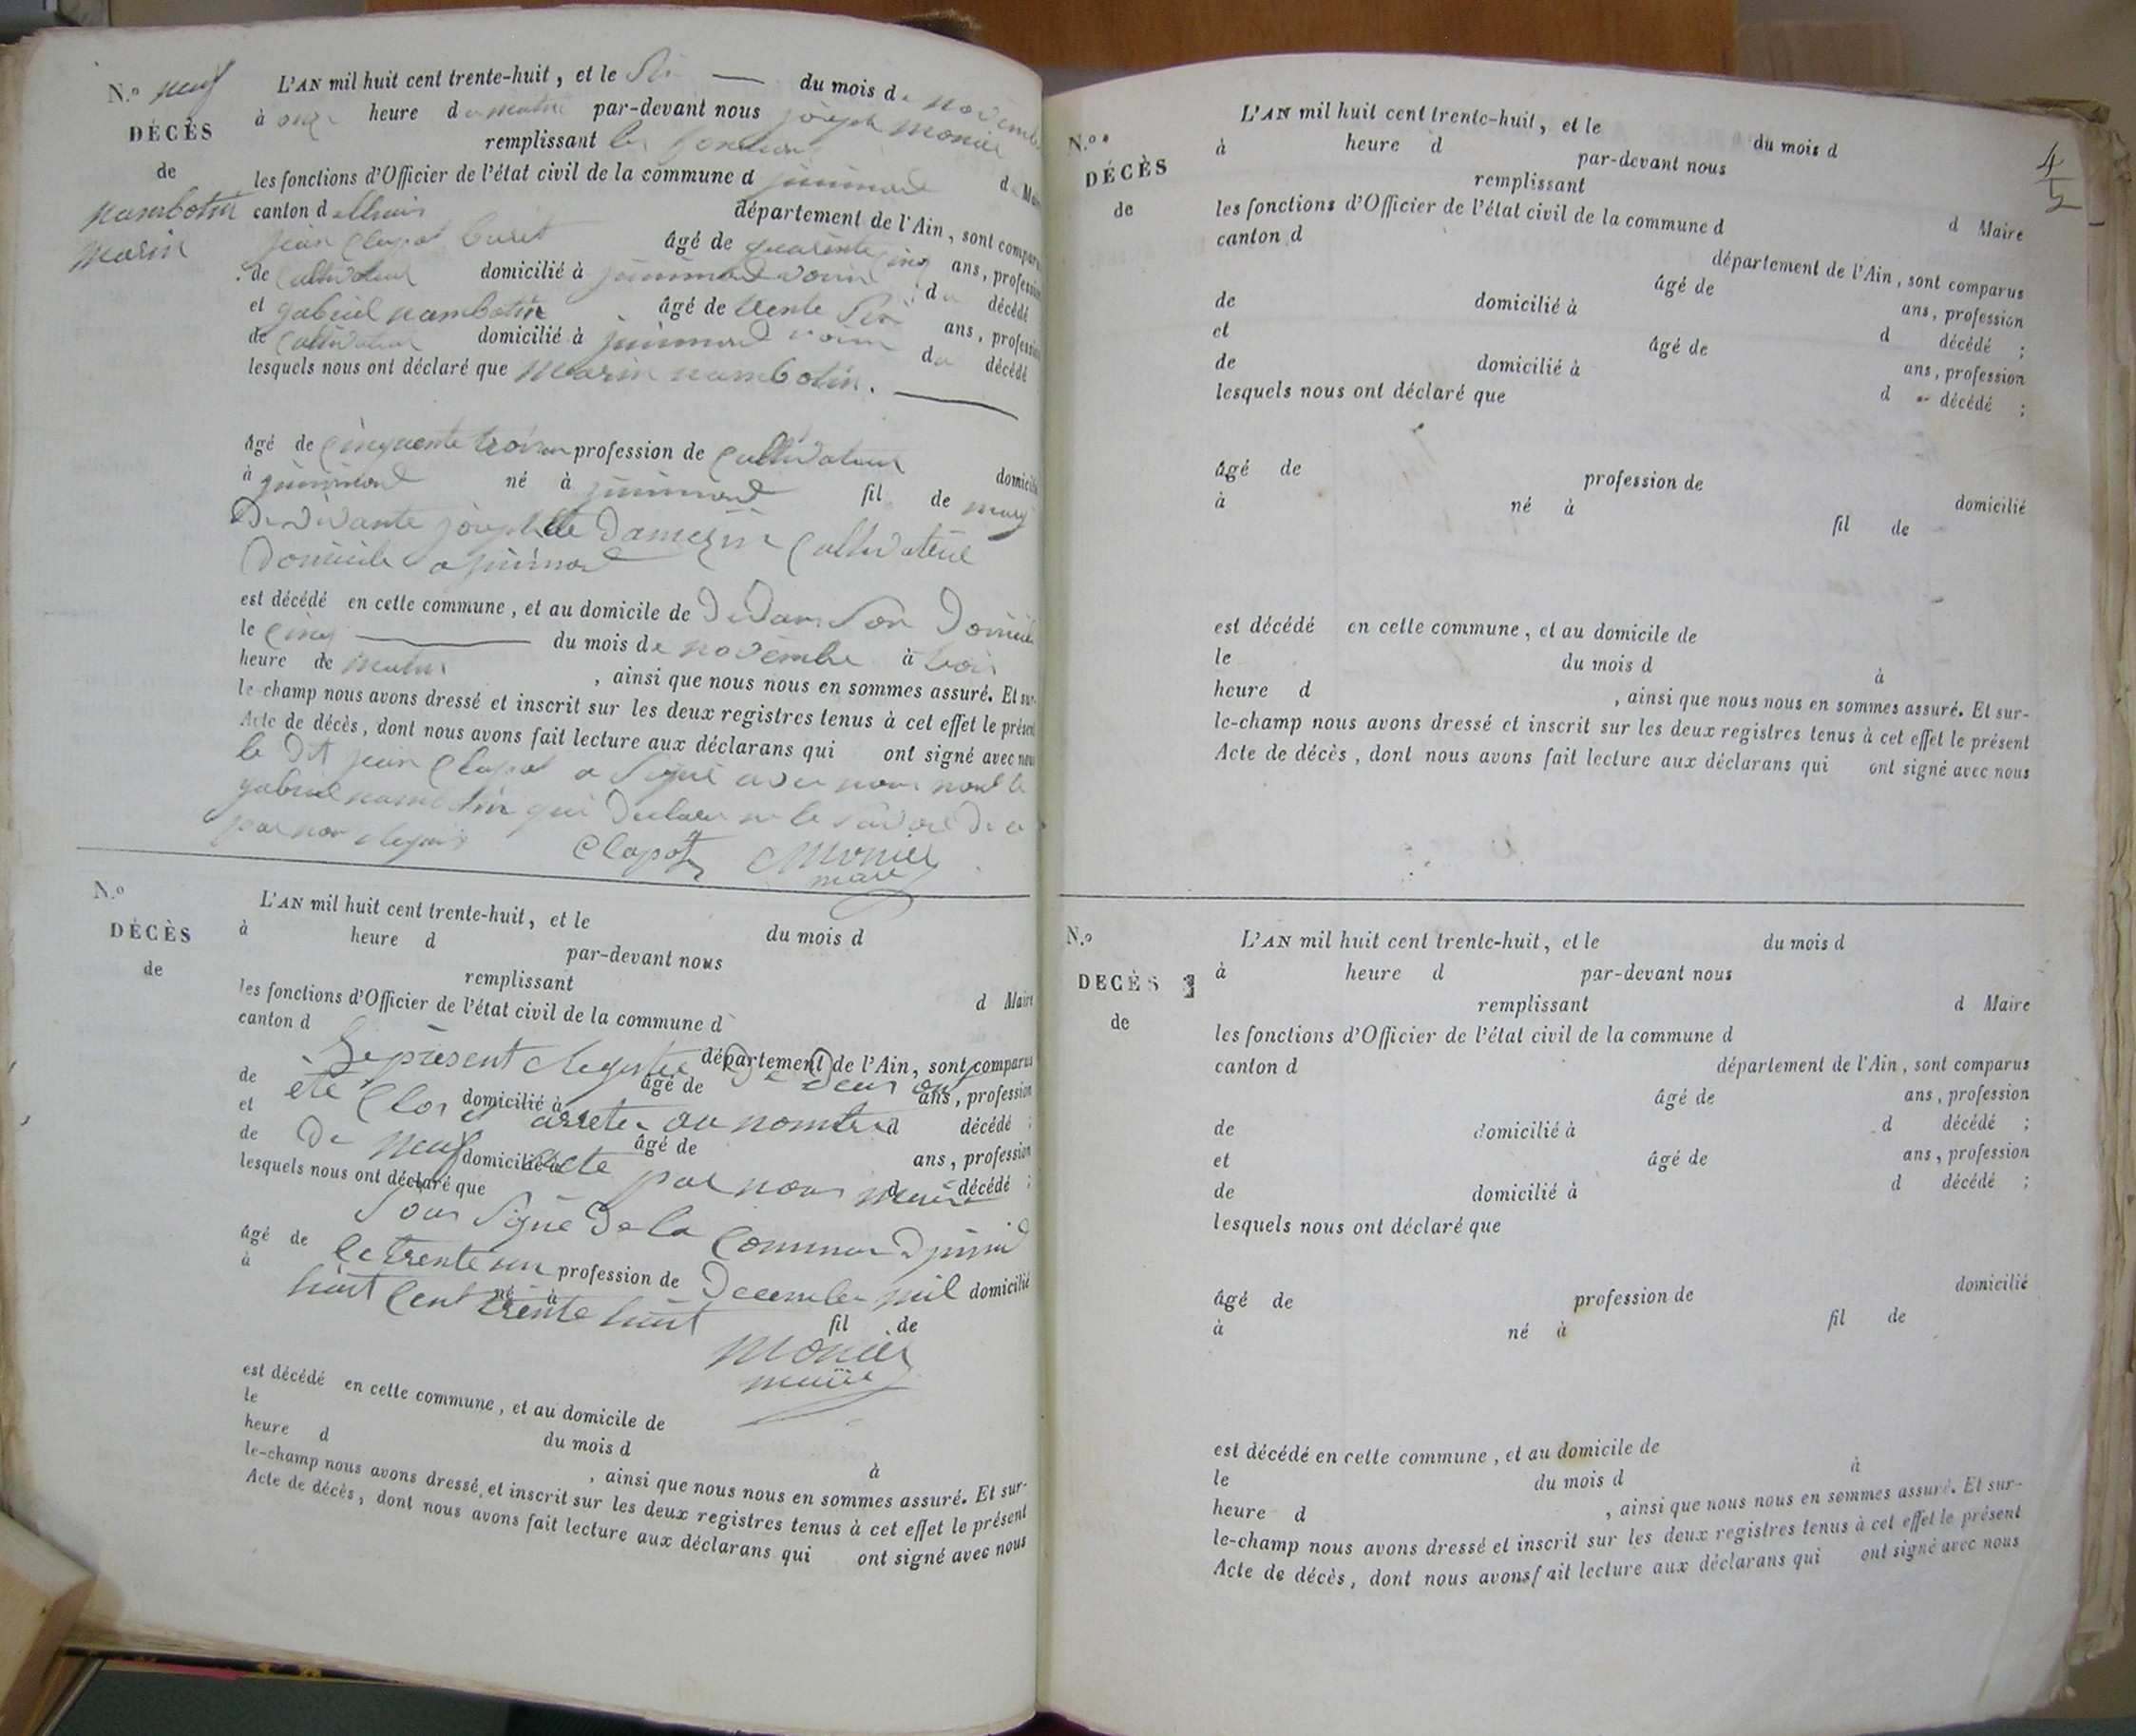 N.º neuf
DÉCÈS
de
nambotin
marin
L'AN mil huit cent trente-huit, et le Six du mois de novembre
à onze heure du matin par-devant nous joseph monier
remplissant les fonctions
les fonctions d'Officier de l'état civil de la commune d d Maire
canton d département de l'Ain, sont comparus
jean Clapot âgé de quarente cinq ans, profession
de Cultivateur domicilié à voisin du décédé
et gabriel nambotin âgé de trente Six ans, profession
de Cultivateur domicilié à voisin du décédé
lesquels nous ont déclaré que marin nambotin.
âgé de Cinquente trois an profession de Cultivateur domicilié
à né à fil de
joseph Damezin Cultivateur
Domicile a
est décédé en cette commune, et au domicile de Dedans Son Domicile
le Cinq du mois de novembre à trois
heure de matin, ainsi que nous nous en sommes assuré. Et sur-
le-champ nous avons dressé et inscrit sur les deux registres tenus à cet effet le présent
Acte de décès, dont nous avons fait lecture aux déclarans qui ont signé avec nous
le Dit jean Clapot a Signé avec nous non le
gabriel nambotin qui Declare ne le Savoir De ce
par nous requis
Clapot Monier
maire
N.º
DÉCÈS
de
L'AN mil huit cent trente-huit, et le du mois d
à heure d par-devant nous
remplissant
les fonctions d'Officier de l'état civil de la commune d d Maire
canton d département de l'Ain, sont comparus
Le présent Registre De Deces ont
de domicilié à âgé de ans, profession
été Clos et arreter au nombre
et d décédé ;
de domicilié à âgé de ans, profession
De neuf acte par nous maire
lesquels nous ont déclaré que d décédé ;
Sous Signé De la Commune
âgé de profession de domicilié
le trente un Decembre mil
à né à fil de
huit Cent trente huit
Monier
maire
est décédé en cette commune, et au domicile de
le du mois d à
heure d , ainsi que nous nous en sommes assuré. Et sur-
le-champ nous avons dressé, et inscrit sur les deux registres tenus à cet effet le présent
Acte de décès, dont nous avons fait lecture aux déclarans qui ont signé avec nous
4
5
N.º
DÉCÈS
de
L'AN mil huit cent trente-huit, et le du mois d
à heure d par-devant nous
remplissant
les fonctions d'Officier de l'état civil de la commune d d Maire
canton d département de l'Ain, sont comparus
âgé de ans, profession
de domicilié à d décédé ;
et âgé de ans, profession
de domicilié à d décédé ;
lesquels nous ont déclaré que
âgé de profession de domicilié
à né à fil de
est décédé en cette commune, et au domicile de
le du mois d à
heure d , ainsi que nous nous en sommes assuré. Et sur-
le-champ nous avons dressé et inscrit sur les deux registres tenus à cet effet le présent
Acte de décès, dont nous avons fait lecture aux déclarans qui ont signé avec nous
N.º
DECÈS
de
L'AN mil huit cent trente-huit, et le du mois d
à heure d par-devant nous
remplissant d Maire
les fonctions d'Officier de l'état civil de la commune d
canton d département de l'Ain, sont comparus
âgé de ans, profession
de domicilié à d décédé ;
et âgé de ans, profession
de domicilié à d décédé ;
lesquels nous ont déclaré que
âgé de profession de domicilié
à né à fil de
est décédé en cette commune, et au domicile de
le du mois d à
heure d , ainsi que nous nous en sommes assuré. Et sur-
le-champ nous avons dressé et inscrit sur les deux registres tenus à cet effet le présent
Acte de décès, dont nous avons fait lecture aux déclarans qui ont signé avec nous